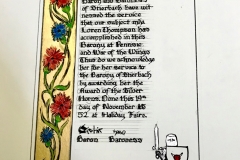 Baron and Baroness
of Stierbach have wit
nessed the service
that our subject mila
Loren Thompson has
accomplished in this
Barony, at Pennsic
and War of the Wings
Thus do we acknowledge
for her service to
the Barony of Stierbach
by awarding her the
Award of the
Horns. Done this 19th
day of November AS
52 at Holiday Faire.
Baron Baroness